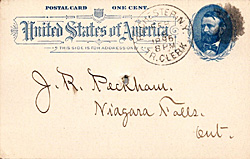 POSTAL CARD ONE CENT.
United States of America.
THIS SIDE IS FOR ADDRESS ONLY
8 PM
R. CLERK
J. R. Peckham.
Niagara Falls.
Ont.